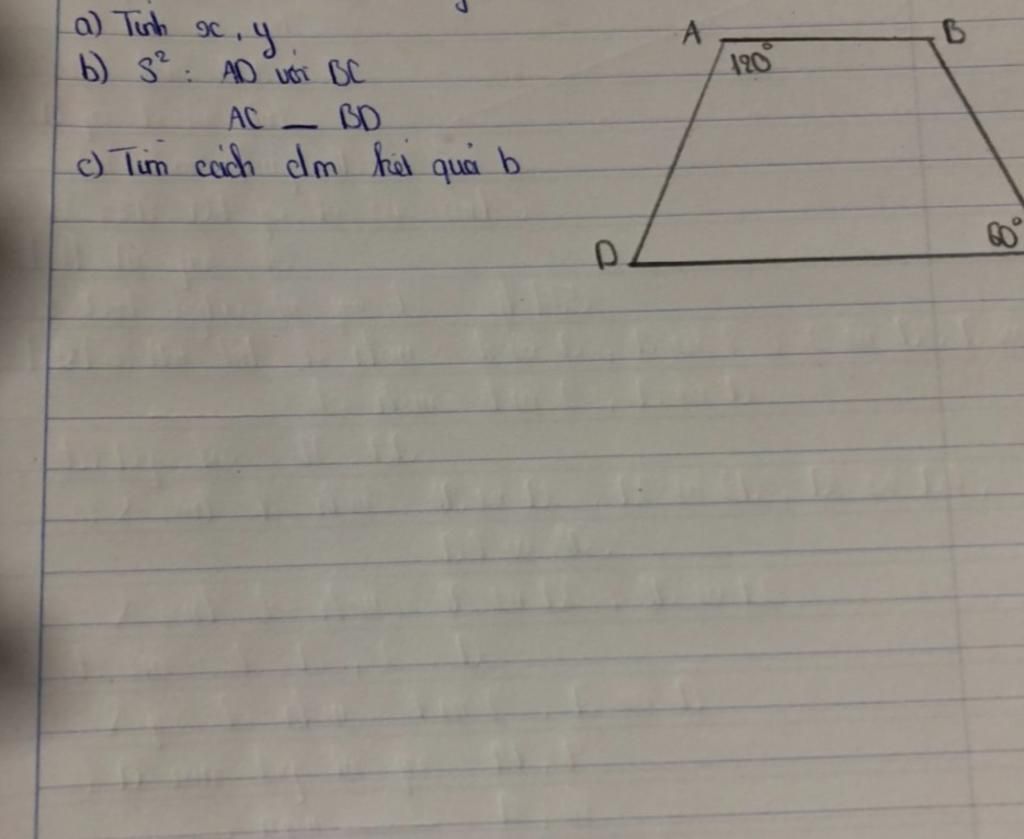 a) Tính x, y
b) S²: AD với BC
AC — BD
c) Tìm cách c/m kết quả b
A B
120°
60°
D